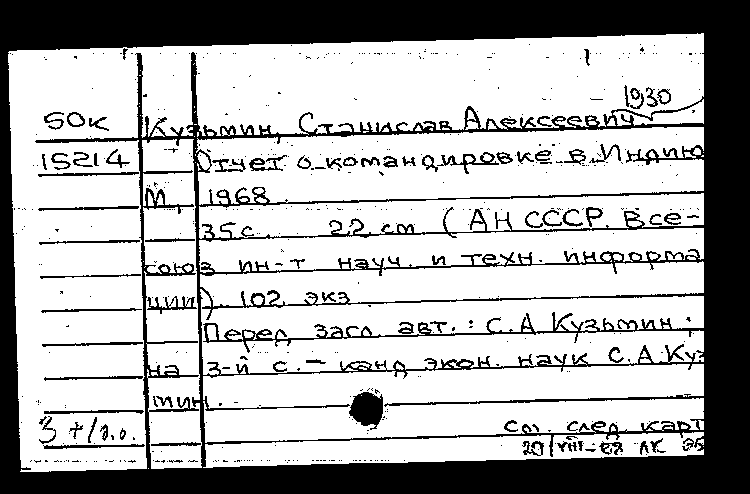 1930
50к Кузьмин, Станислав Алексеевич.
15214 Отчет о командировке в Индию
М, 1968
35 с. 22 см (АН СССР. Все-
союз ин-т науч. и техн. информа
ции). 102 экз
Перед загл. авт.: С.А Кузьмин;
на 3-й с. – канд экон. наук С.А.Куз
мин.
3 см. след. карт
20/VIII-68 ЛК